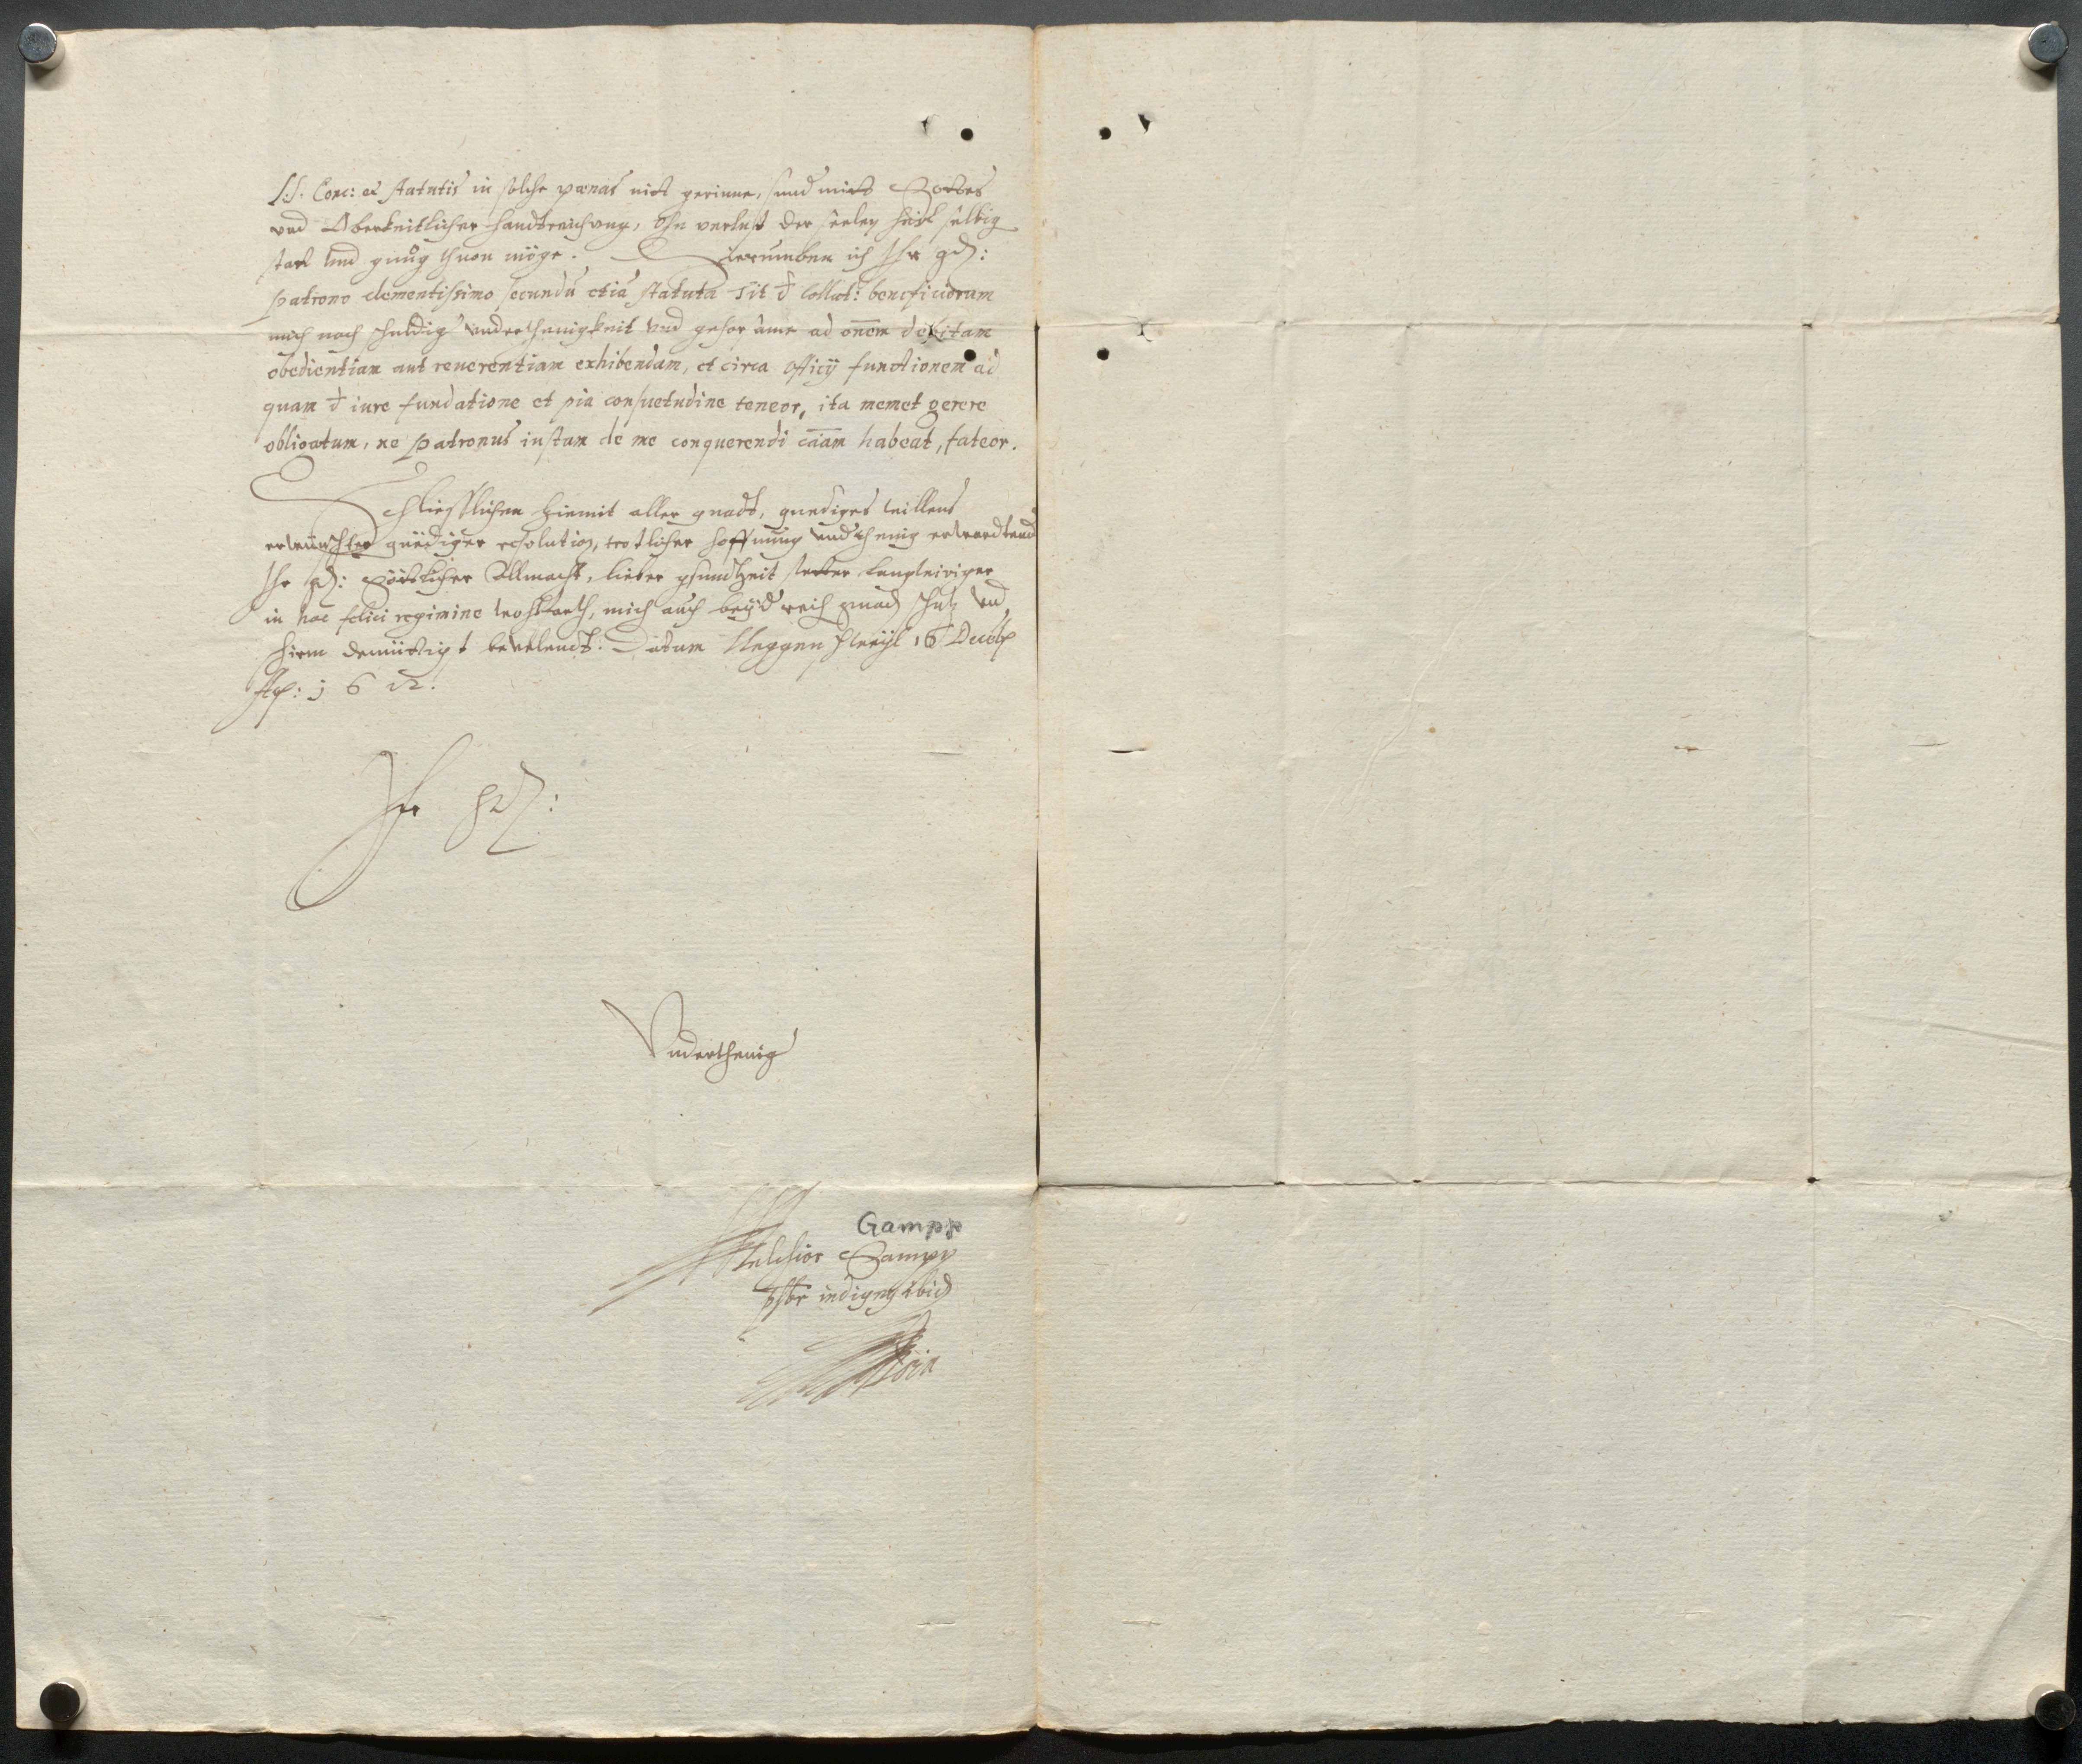 S.S. Conc: et statutis in solche poenas nit gerinne, sund mitt Gottes
vnd Oberkeitlicher handtreichung, Ohn verlust der seelen heil selbig
statt vnd gnuog thuon möge. Derumben ich Ihr gd:
Patrono clementissimo secundū etiā statuta tit: d Collat: beneficiorum
mich nach schuldig vnderthenigkeit vnd gehorsame ad onem debitam
obedientiam aut reuerentiam exhibendam, et circa officij functionem ad
quam d iure fundatione et pia consuetudine teneor, ita memet gerere
obligatum, ne Patronus iustam de me conquerendi caam habeat, fateor.
Schliesslichen hiemit aller gnadt, gnediges willens
erwünschter gnediger resolution, trostlicher hoffnung vndthenig erwardtend
Ihr gd: Göttlicher Allmacht, lieber gsundtheit langwiriger
in hac felici regimine mich auch beyd gnad schutz vnd
schirm demüttigst bevelendt. Datum 16 Decēb
A: 1612.
Ihr gd:
Vnderthenig
Gampp
Melchior Gampp
pbr indigng ibid